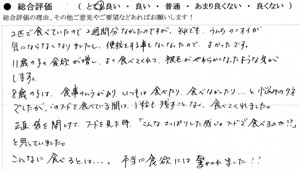 ● 総合評価 （ とても良い ・ 良い ・ 普通 ・ あまり良くない ・ 良くない ）
総合評価の理由、その他ご意見やご要望などあればお願いします！
2匹で食べていたので2週間分なかったのですが、それでも、うんちのニオイが
気にならなくなりましたし、便秘をする事もなくなったので よかったです。
11歳の子の食欲が増し、よく食べてくれ、被毛がやわらかくなったような気が
します。
8歳の子は、食事のムラがあり、いつもは食べたり、食べなかったり…と
でしたが、このフードを食べている間は、1粒も残すことなく、食べてくれました。
正直、袋を開けて、フードを見た時、「こんなさっぱりした感じのフードで食べるのか!?」
と思っていました。
こんなに食べるとは…。 本当に食欲には驚かされました!!